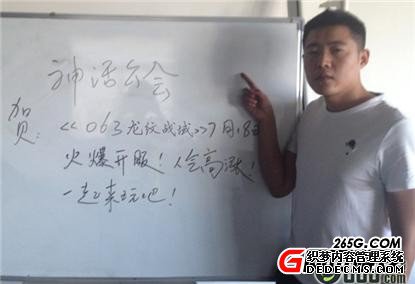 神话公会
贺：《063龙纹战域》7月18日
火爆开服！人气高涨！
一起来玩吧！
265G.COM
织梦内容管理系统
DEDECMS.COM